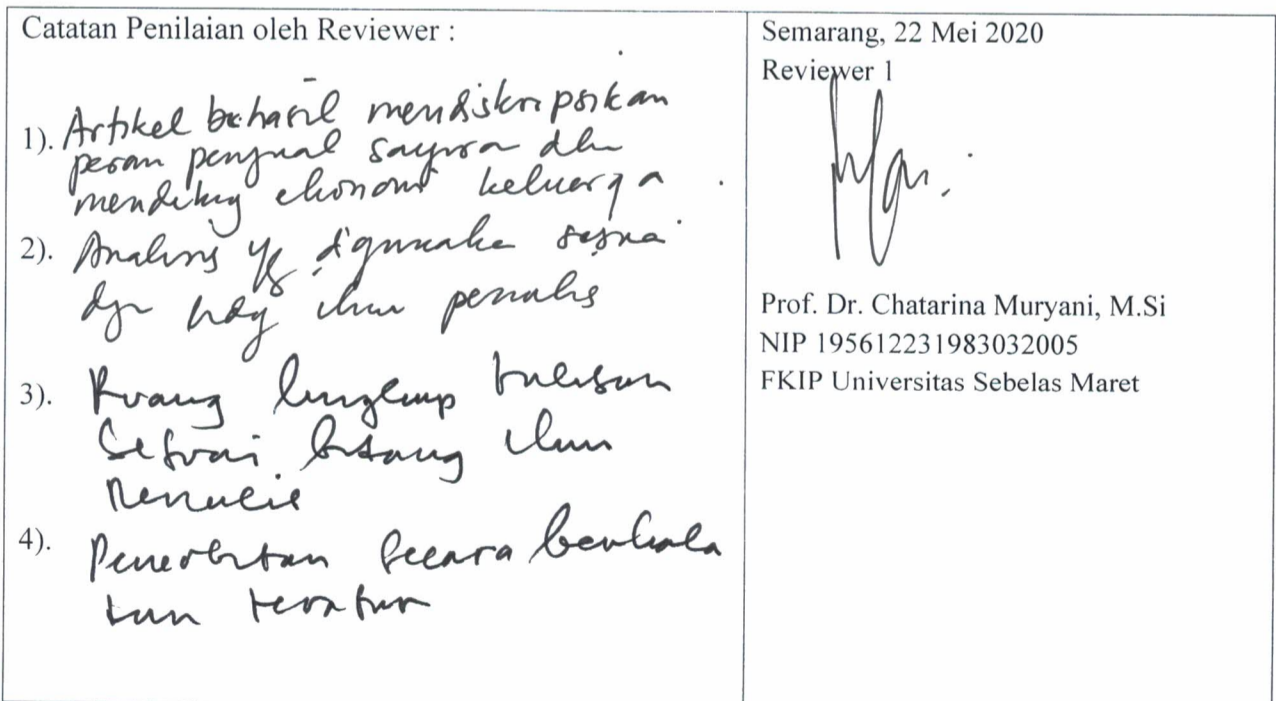 Catatan Penilaian oleh Reviewer :
1). Artikel behasil mendiskripsikan
peran penjual sayura dlm
mendukug ekonomi keluarga .
2). Analisis yg digunaka sesuai
dgn bdg ilmu penulis
3). Ruang lingkup tulisan
Sesuai bidang ilmu
Penulis
4). Penerbitan secara berkala
dan teratur
Semarang, 22 Mei 2020
Reviewer 1
Prof. Dr. Chatarina Muryani, M.Si
NIP 195612231983032005
FKIP Universitas Sebelas Maret